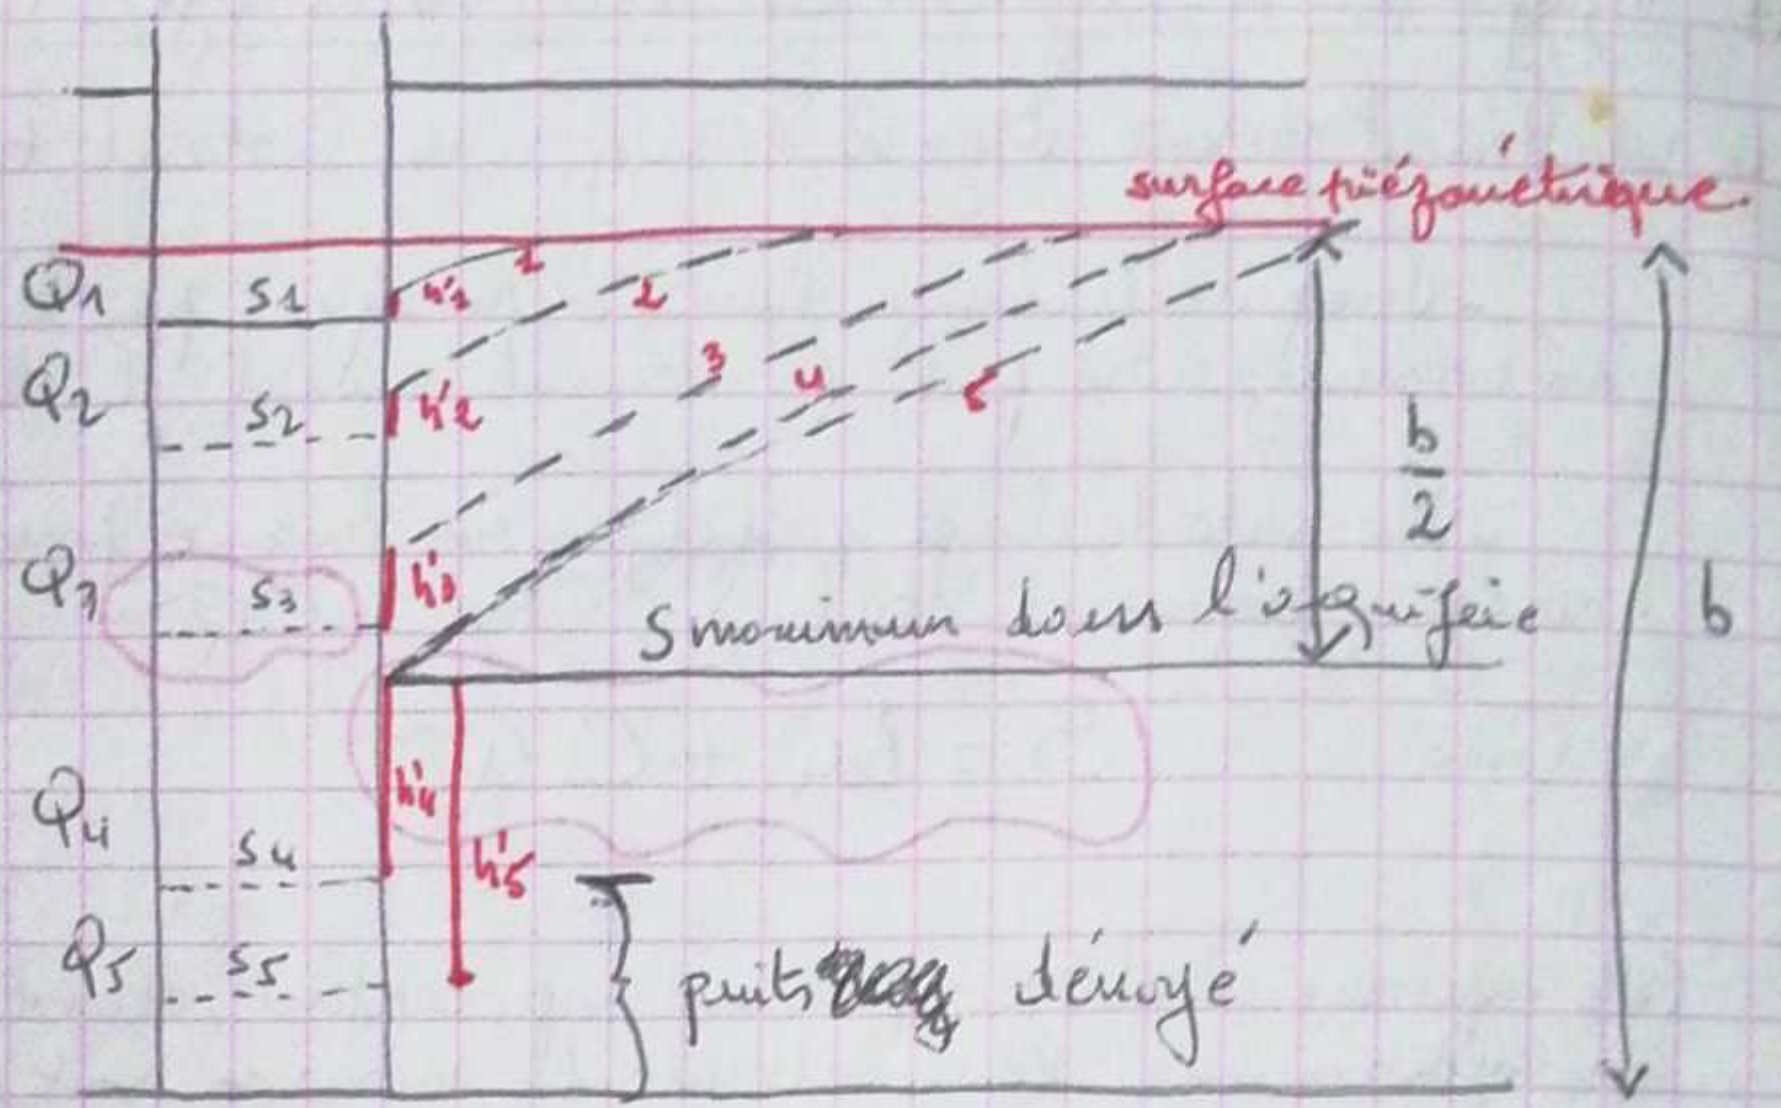 surface piézométrique.
Q1 S1 h'1 1
2
Q2 S2 h'2
3
4
5
b
2
Q3 S3 h'3
S maximum dans l'aquifère
b
Q4 S4 h'4
h'5
Q5 S5
puits dénoyé